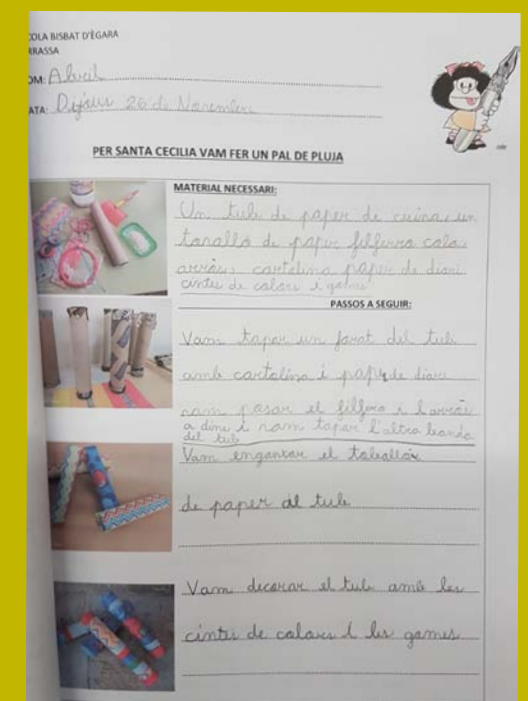 COLA BISBAT D'ÈGARA
RRASSA
OM: Abril
ATA: Dijous 26 de Novembre
PER SANTA CECILIA VAM FER UN PAL DE PLUJA
MATERIAL NECESSARI:
Un tub de paper de cuina, un
tovalló de paper filferro cola
arròs, cartolina paper de diari
cintes de colors i gomes
PASSOS A SEGUIR:
Vam tapar un forat del tub
amb cartolina i paper de diari
vam pasar el filferro i l'arròs
a dins i vam tapar l'altra banda
del tub
Vam enganxar el tovalló
de paper al tub
Vam decorar el tub amb les
cintes de colors i les gomes